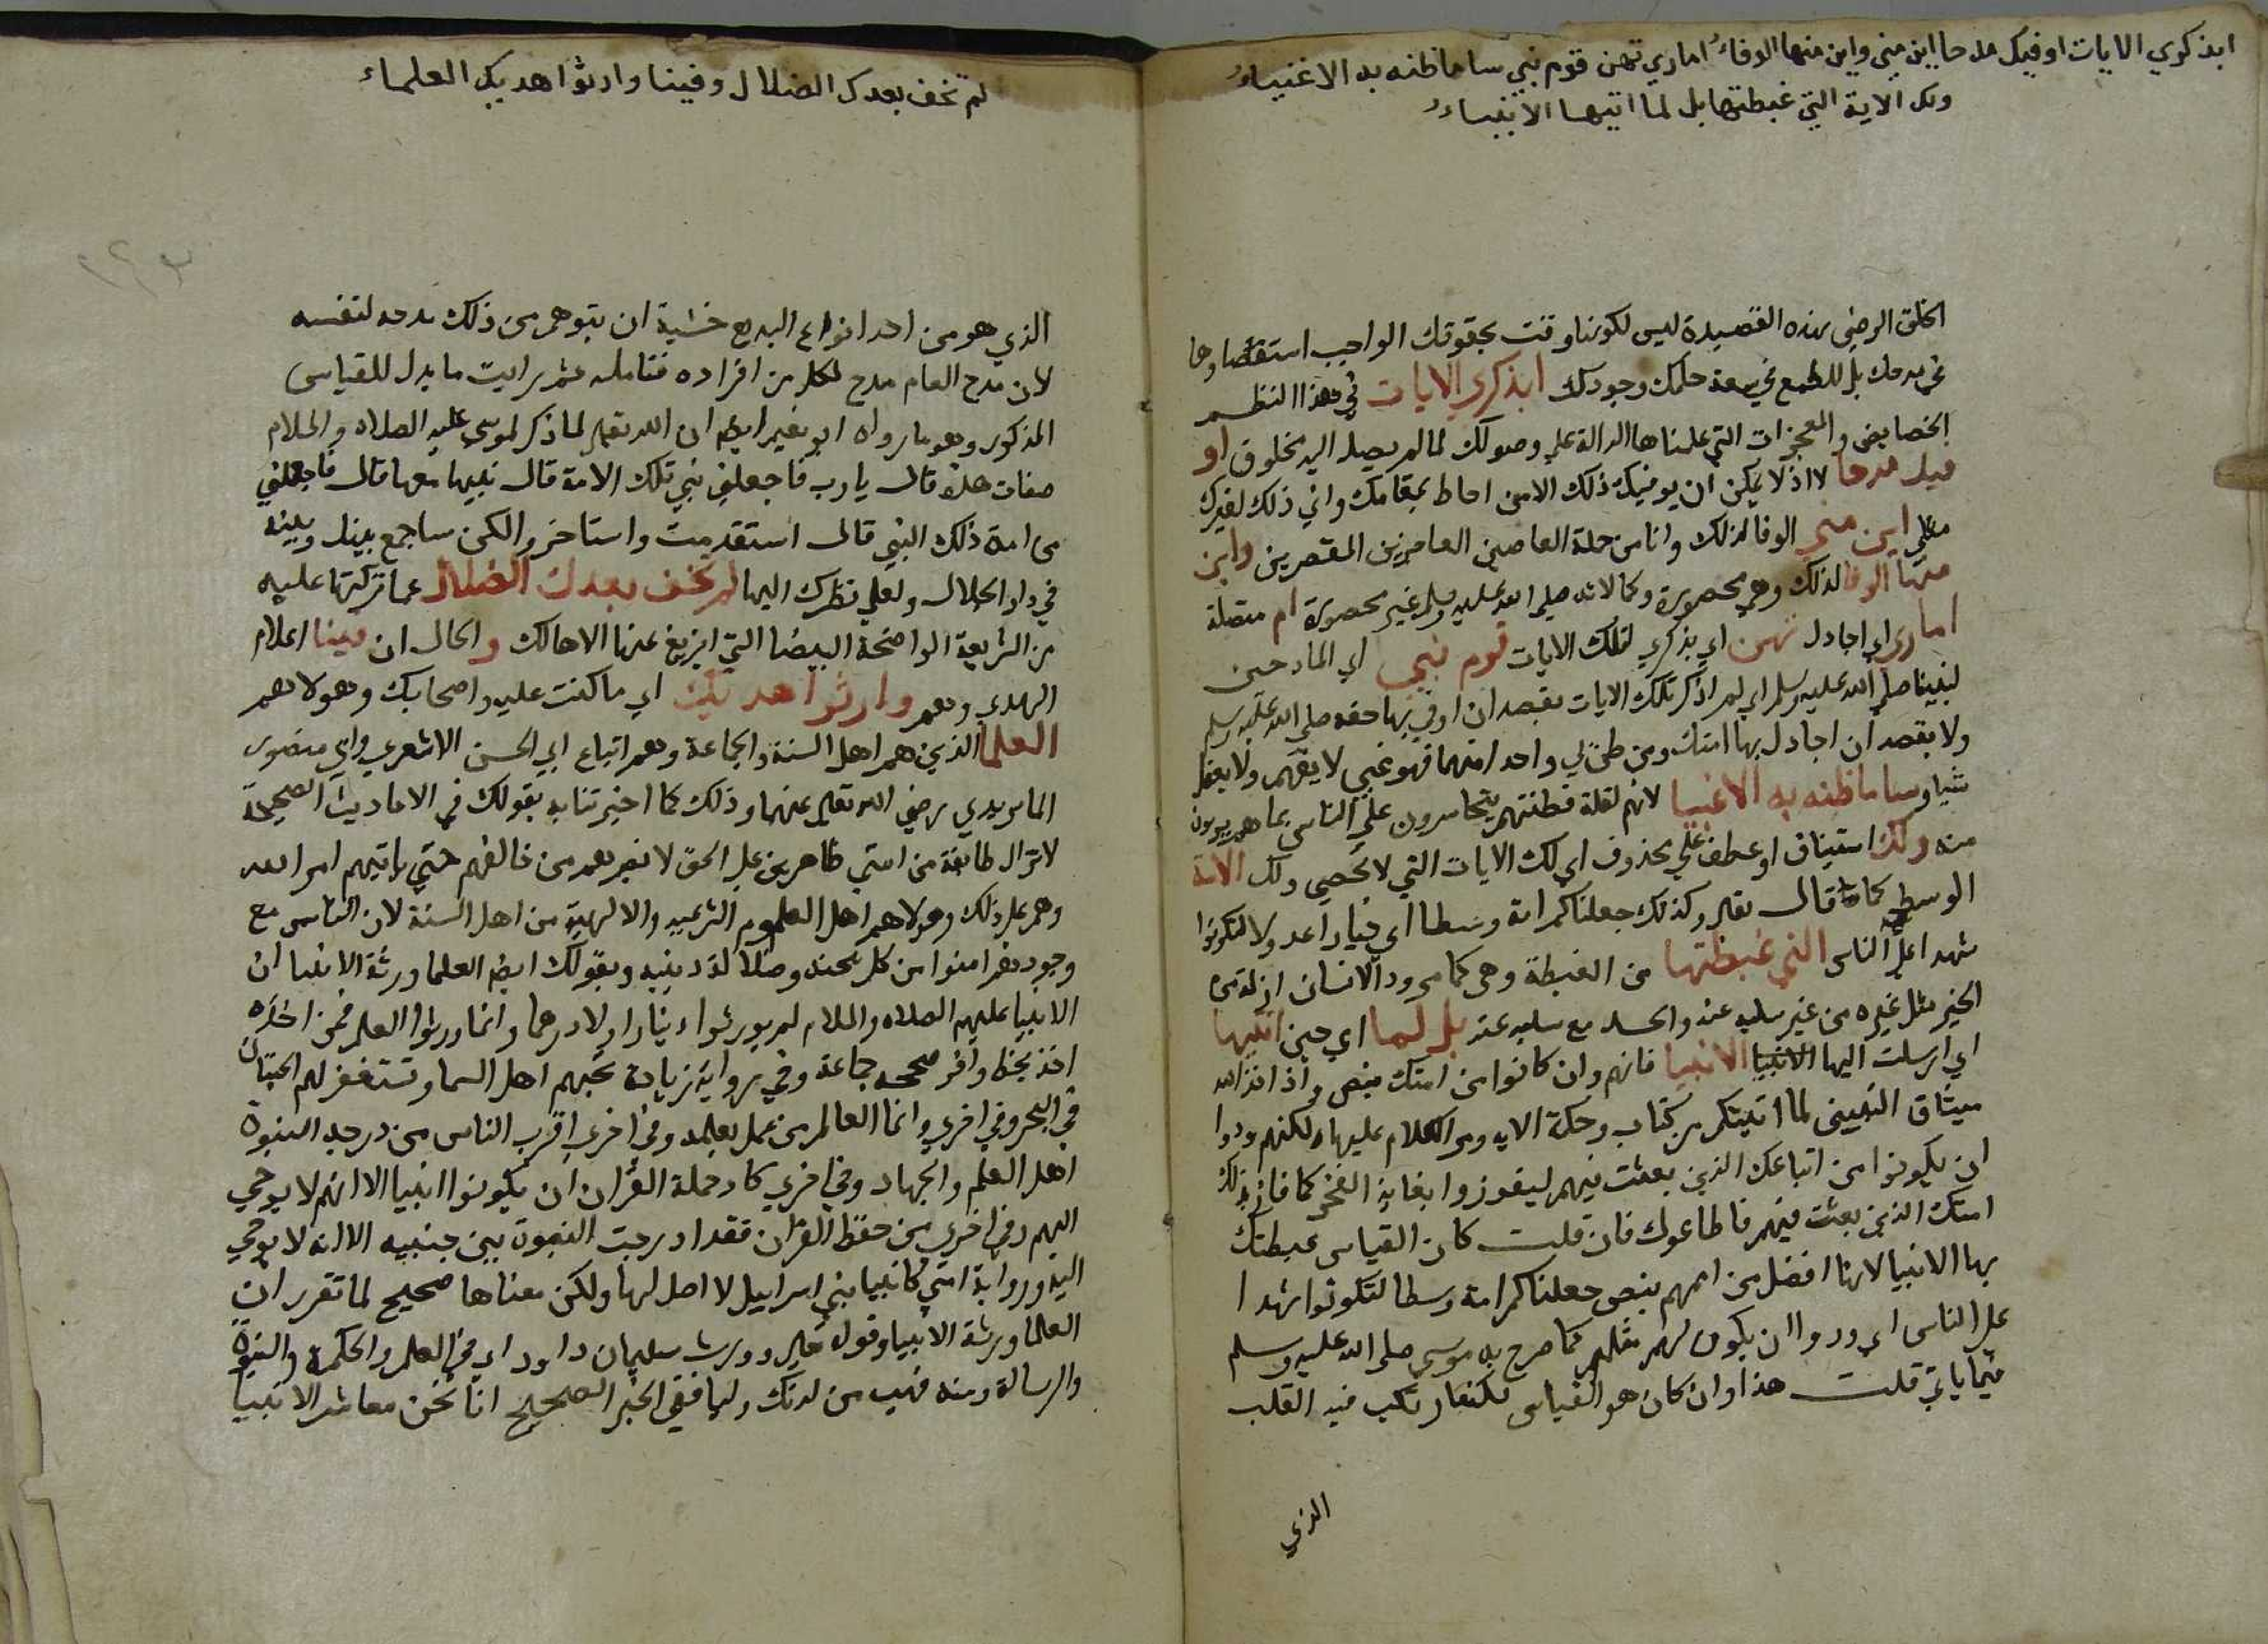 ابذكري الايات اوفيك مدحا اين مني واين منها الوفاءُ ام اماري بهن قوم نبي ساء ما ظنه بي الاغبياءُ
ولك الامة التي غبطتها بك لما اتيتها الانبياءُ
الخلق الرضي بهذه القصيدة ليس لكوننا وفت بحقوقك الواجب استقصاوها
في مدحك بل للطمع في سعة حلمك وجودك ابذكري الايات في هذا النظم
الخصايص والمعجزات التي علمناها الدالة على وصولك لما لم يصل اليه مخلوق او
فيك مدحا لا اذ لا يمكن ان يوفيك ذلك الا من احاط بمقامك واني ذلك لغيرك
مثلي اين مني الوفا لذلك وانا من جملة العاصين العاجزين المقصرين واين
منها الوفا لذلك وهي محصورة وكمالاته صلى الله عليه وسلم غير محصورة ام متصلة
اماري اي اجادل بهن اي بذكري لتلك الايات قوم نبي اي المادحين
لنبينا صلى الله عليه وسلم اي لم اذكر تلك الايات بقصد ان اوفي بها حقه صلى الله عليه وسلم
ولا بقصد ان اجادل بها امتك ومن ظن لي واحدا منهما فهو غبي لا يفهم ولا يعقل
شيا وساء ما ظنه به الاغبيا لانهم لقلة فطنتهم يتجاسرون على الناس بما هم بريون
منه ولك استيناف او عطف على محذوف اي لك الايات التي لا تحصى ولك الامة
الوسط كما قال تعالى وكذلك جعلناكم امة وسطا اي خيارا عدولا لتكونوا
شهدا على الناس التي غبطتها من الغبطة وهي كما مر ود الانسان ان له من
الخير مثل غيره من غير سلبه عنه والحسد مع سلبه عنه بك لما اي حين اتيتها
اي ارسلت اليها الانبيا الانبيا فانهم وان كانوا من امتك بنص واذ اخذ الله
ميثاق النبيين لما اتيتكم من كتاب وحكمة الاية ومر الكلام عليها لكنهم ودوا
ان يكونوا من اتباعك الذين بعثت فيهم ليفوزوا بغاية الفخر كما فاز بذلك
امتك الذين بعثت فيهم فاطاعوك فان قلت كان القياس غبطتك
بها الانبيا لانها افضل من اممهم بنص جعلناكم امة وسطا لتكونوا شهدا
على الناس اي ودوا ان يكون لهم مثلهم كما صرح به موسى صلى الله عليه وسلم
فيما ياتي قلت هذا وان كان هو القياس لكنه ارتكب فيه القلب
الذي
لم تخف بعدك الضلال وفينا وارثوا هديك العلماء
الذي هو من احد انواع البديع خشية ان يتوهم من ذلك مدحه لنفسه
لان مدح العام مدح لكل من افراده فتامله ثم رايت ما يدل للقياس
المذكور وهو ما رواه ابو نعيم ايضا ان الله تعالى لما ذكر لموسى عليه الصلاة والسلام
صفات هذه قال يا رب فاجعلني نبي تلك الامة قال نبيها منها قال فاجعلني
من امة ذلك النبي قال استقدمت واستاخر ولكن ساجمع بينك وبينه
في دار الجلال ولعلي نظرك اليها لم تخف بعدك الضلال عما تركتها عليه
من الشريعة الواضحة البيضا التي لا يزيغ عنها الا هالك والحال ان فينا اعلام
الهدي وهم وارثوا هديك اي ما كنت عليه واصحابك وهولا هم
العلما الذين هم اهل السنة والجماعة وهم اتباع ابي الحسن الاشعري وابي منصور
الماتريدي رضي الله تعالى عنهما وذلك كما اخبرتنا به بقولك في الاحاديث الصحيحة
لا تزال طايفة من امتي ظاهرين على الحق لا يضرهم من خالفهم حتي ياتيهم امر الله
وهم على ذلك وهولا هم اهل العلوم الشرعية والالهية من اهل السنة لان الناس مع
وجودهم امنوا من كل محنة وضلالة دينية وبقولك ايضا العلما ورثة الانبيا ان
الانبيا عليهم الصلاة والسلام لم يورثوا دينارا ولا درهما وانما ورثوا العلم فمن اخذه
اخذ بحظ وافر صححه جماعة وفي رواية زيادة تحبهم اهل السما وتستغفر لهم الحيتان
في البحر وفي اخري وانما العالم من عمل بعلمه وفي اخري اقرب الناس من درجة النبوة
اهل العلم والجهاد وفي اخري كاد حملة القران ان يكونوا انبيا الا انهم لا يوحي
اليهم وفي اخري من حفظ القران فقد ادرجت النبوة بين جنبيه الا انه لا يوحي
اليه ورواية امتي كانبيا بني اسراييل لا اصل لها ولكن معناها صحيح لما تقرر ان
العلما ورثة الانبيا وقوله تعالى وورث سليمان داود اي في العلم والحكمة والنبوة
والرسالة ومنه فهب من لدنك وليا ففي الخبر الصحيح انا نحن معاشر الانبيا